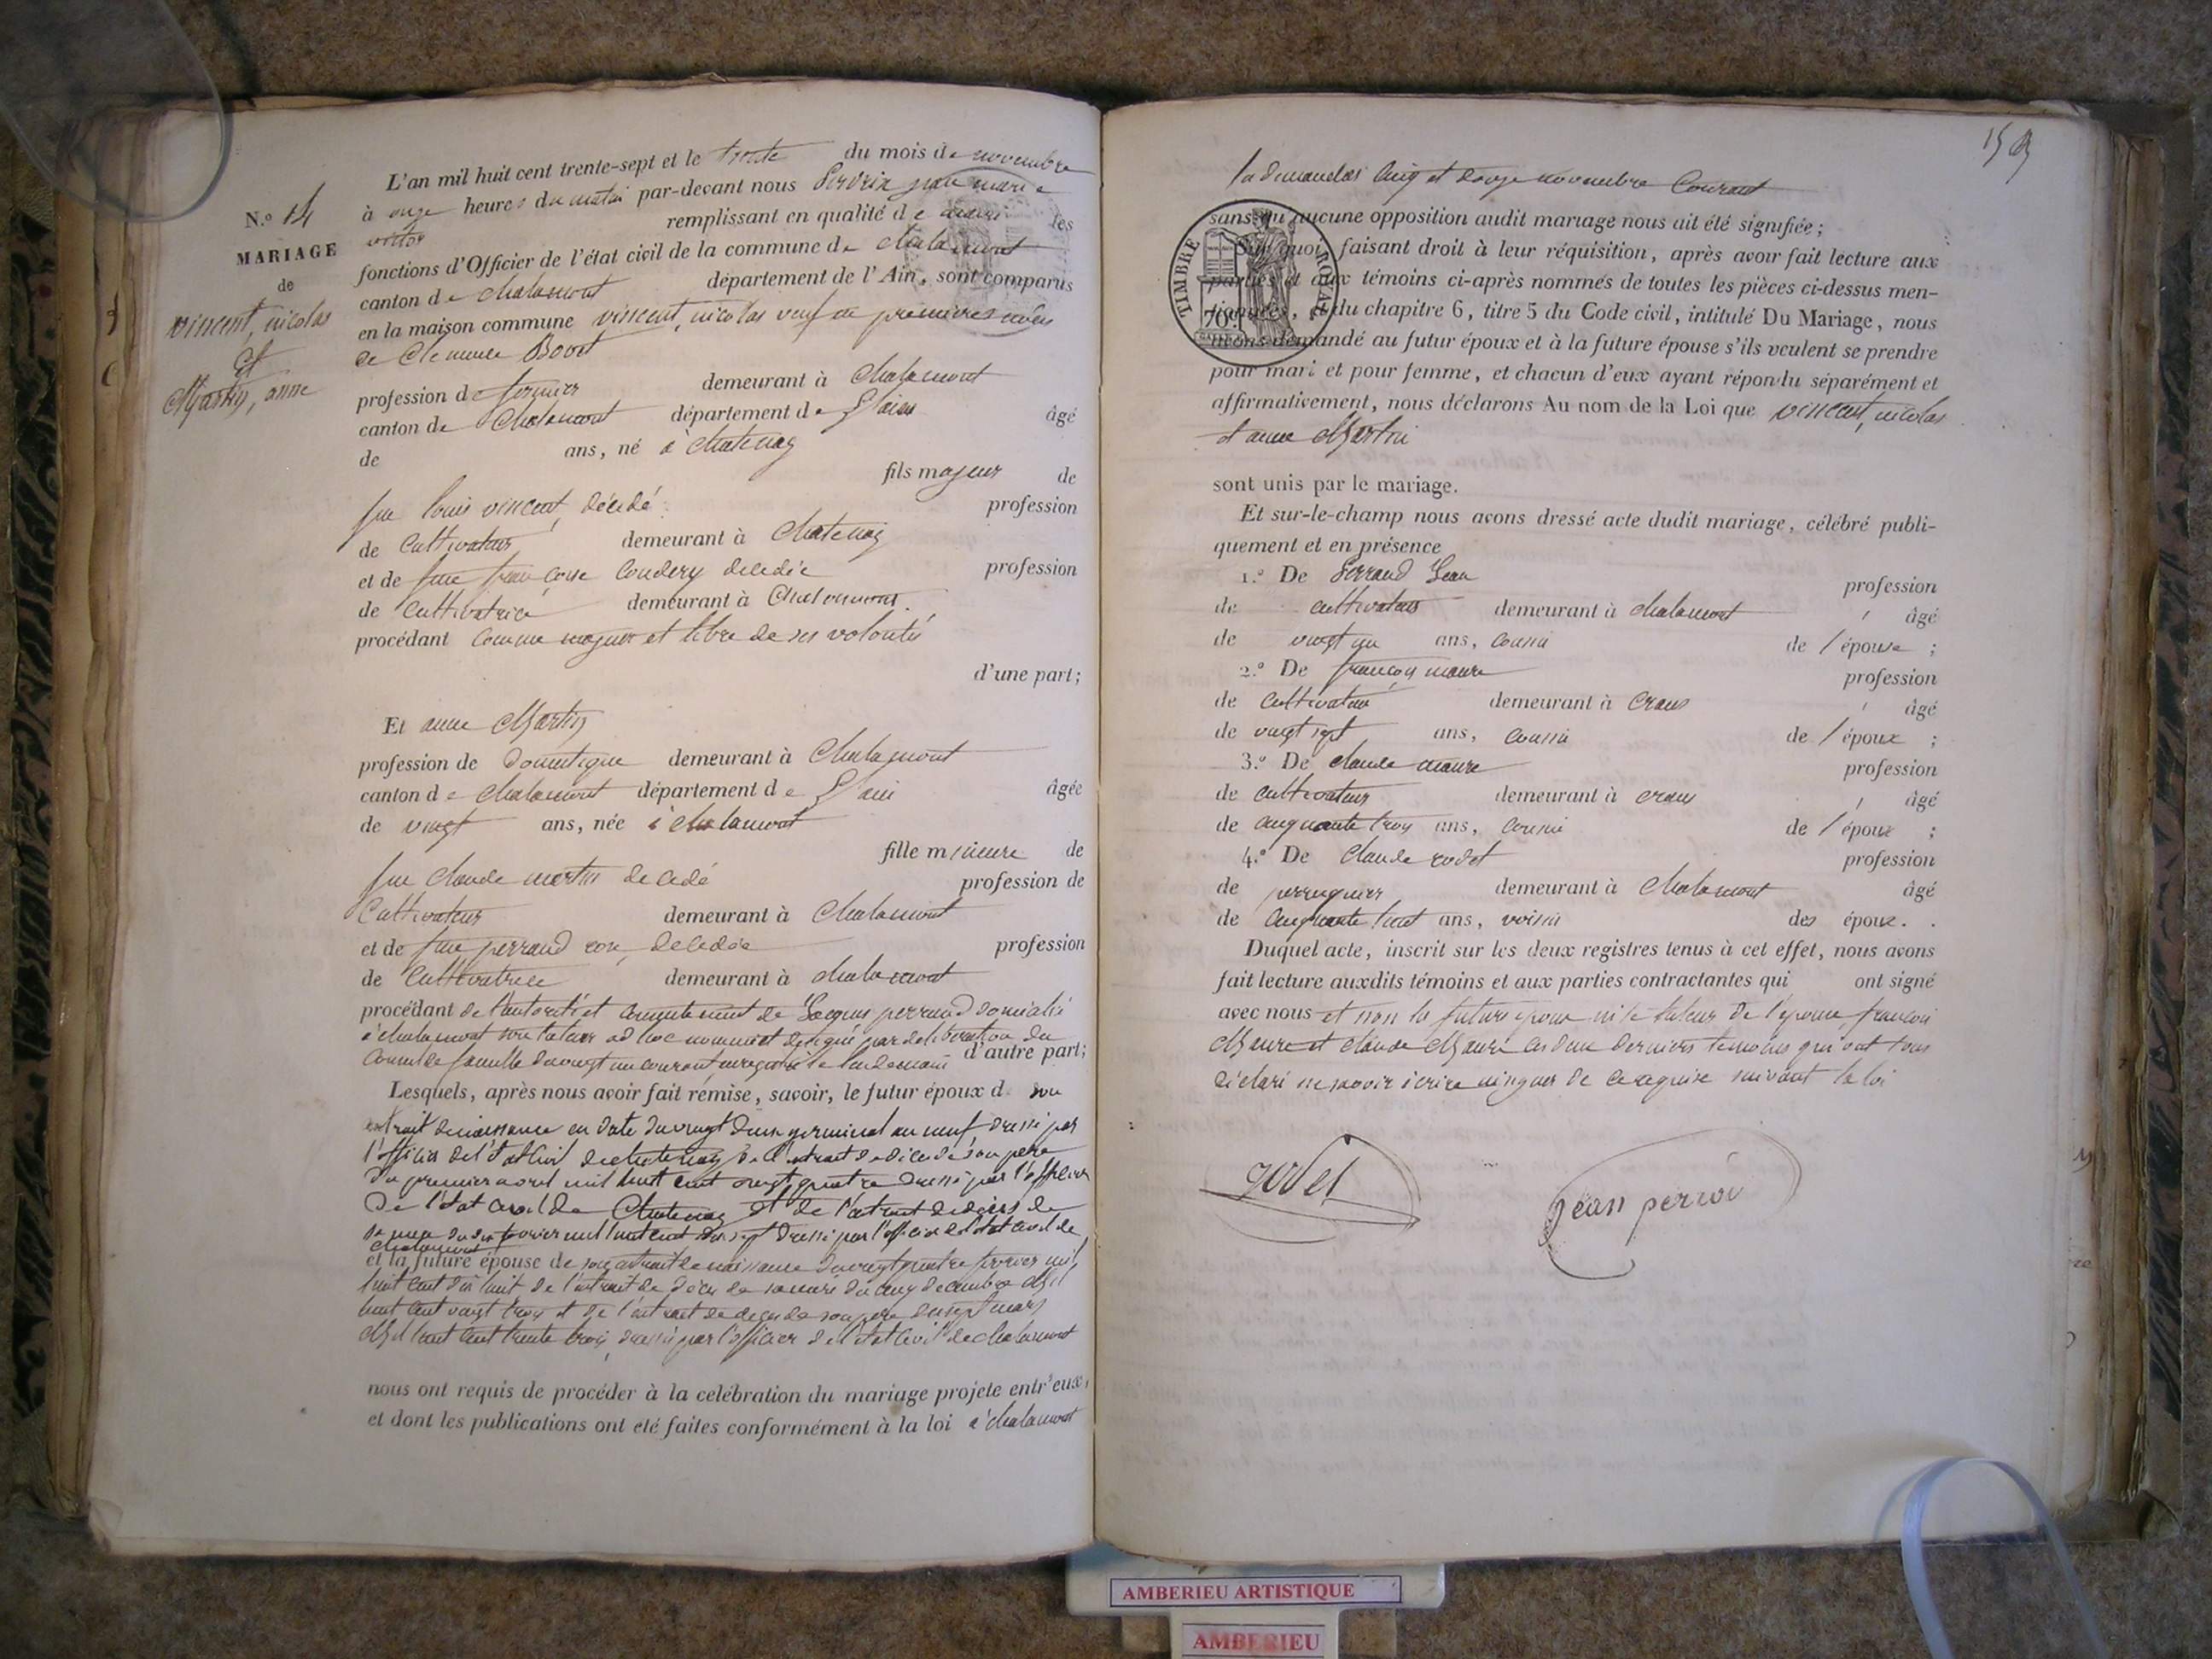 N.º 14
MARIAGE
de
vincent, nicolas
et
Martin, anne
L'an mil huit cent trente-sept et le trente du mois de novembre
à onze heures du matin par-devant nous jean marie
victor remplissant en qualité de maire les
fonctions d'Officier de l'état civil de la commune de chalamont
canton de chalamont département de l'Ain, sont comparus
en la maison commune vincent, nicolas veuf en premieres noces
de Bovet
profession de fermier demeurant à chalamont
canton de Chalamont département de l'ain âgé
de ans, né à chatenay
fils majeur de
feu louis vincent décédé
profession
de Cultivateur demeurant à Chatenay
et de feue françoise decedée profession
de Cultivatrice demeurant à Chalamont.
procédant comme majeur et libre de ses volontés
d'une part;
Et anne Martin
profession de Domestique demeurant à Chalamont
canton de chalamont département de l'ain âgée
de vingt ans, née à chalamont
fille mineure de
feu Claude martin decedé profession de
Cultivateur demeurant à Chalamont
et de feue perrand decedée profession
de Cultivatrice demeurant à chalamont
procédant de l'autorité et consentement de Jacques perrand domicilié
à chalamont son tuteur ad hoc nommé et délégué par deliberation du
Conseil de famille du vingt un courant enregistré le lendemain d'autre part;
Lesquels, après nous avoir fait remise, savoir, le futur époux d son
extrait de naissance en date du vingt deux germinal an neuf dressé par
l'officier de l'état civil de chatenay de l'extrait de décès de son pere
du premier avril mil huit cent vingt quatre dressé par l'officier
de l'état civil de Chatenay et de l'extrait de décès de
sa mere du fevrier mil huit cent dressé par l'officier de l'état civil de
chalamont
et la future épouse de son extrait de naissance du vingt quatre fevrier mil
huit cent dix huit de l'extrait de décès de sa mère du cinq decembre Mil
huit cent vingt trois et de l'extrait de deces de son pere du sept mars
Mil huit cent trente trois, dressé par l'officier de l'état civil de chalamont
nous ont requis de procéder à la celébration du mariage projeté entr'eux,
et dont les publications ont été faites conformément à la loi à chalamont
les dimanches cinq et douze novembre Courant
sans qu'aucune opposition audit mariage nous ait été signifiée;
TIMBRE ROYAL
70
Sur quoi, faisant droit à leur réquisition, après avoir fait lecture aux
parties et aux témoins ci-après nommés de toutes les pièces ci-dessus men-
tionnées, et du chapitre 6, titre 5 du Code civil, intitulé Du Mariage, nous
avons demandé au futur époux et à la future épouse s'ils veulent se prendre
pour mari et pour femme, et chacun d'eux ayant répondu séparément et
affirmativement, nous déclarons Au nom de la Loi que vincent, nicolas
et anne Martin
sont unis par le mariage.
Et sur-le-champ nous avons dressé acte dudit mariage, célébré publi-
quement et en présence
1.º De Perrand Jean profession
de cultivateur demeurant à chalamont âgé
de vingt un ans, cousin de l'épouse ;
2.º De françois maure profession
de Cultivateur demeurant à crans âgé
de vingt sept ans, cousin de l'époux ;
3.º De claude maure profession
de cultivateur demeurant à crans âgé
de cinquante trois ans, cousin de l'époux ;
4.º De claude rodet profession
de perruquier demeurant à Chalamont âgé
de cinquante huit ans, voisin des époux.
Duquel acte, inscrit sur les deux registres tenus à cet effet, nous avons
fait lecture auxdits témoins et aux parties contractantes qui ont signé
avec nous et non les futurs époux ni le tuteur de l'épouse, francois
Maure et Claude Maure ces deux derniers temoins qui ont tous
déclaré ne savoir écrire ni signer de ce requis suivant la loi
rodet
jean
AMBERIEU ARTISTIQUE
AMBERIEU